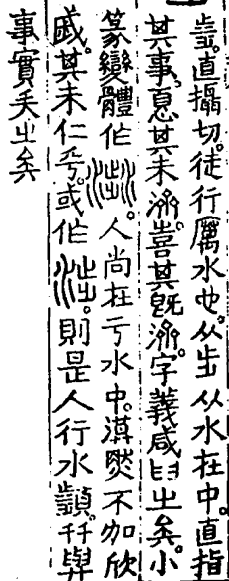 直攝切。徒行厲水也。从步从水在中。直指
其事。息其未。喜其既。字義咸㠯㞢矣。小
篆變體作。人尚在亏水中。漠然不加欣
戚。其未仁乎。或作。則是人行水顛。
事實失㞢矣